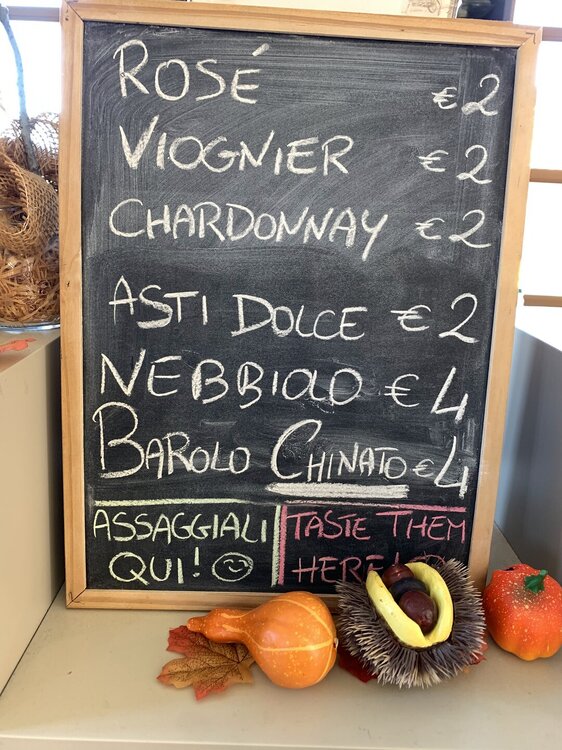 ROSÉ €2
VIOGNIER €2
CHARDONNAY €2
ASTI DOLCE €2
NEBBIOLO €4
BAROLO CHINATO €4
ASSAGGIALI
QUI! ☺
TASTE THEM
HERE!